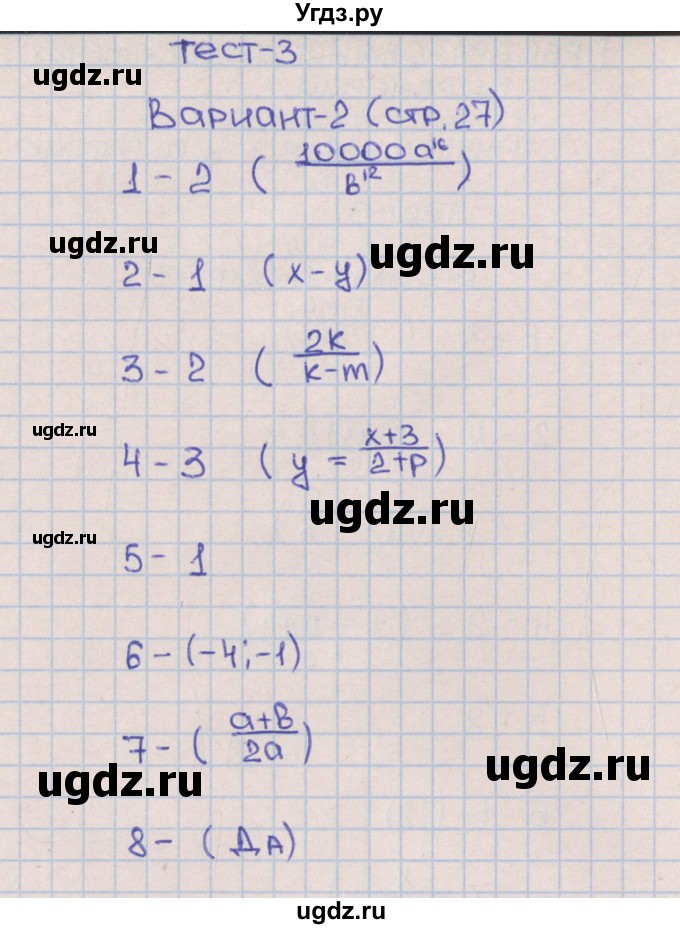 Угдз.ру
Тест-3
ugdz.ru
Вариант-2 (стр. 27)
1 - 2 (10000a¹⁶/b¹²)
ugdz.ru
ugdz.ru
2 - 1 (x - y)
3 - 2 (2k/k-m)
ugdz.ru
4 - 3 (y = x+3/2+p)
ugdz.ru
ugdz.ru
5 - 1
6 - (-4; -1)
7 - (a+b/2a)
ugdz.ru
ugdz.ru
8 - (Да)
ugdz.ru